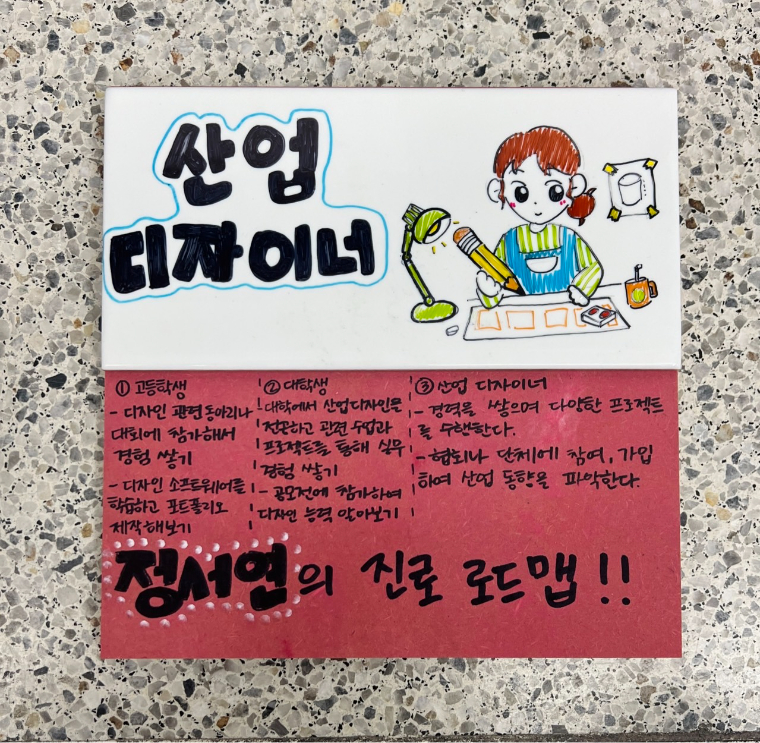 산업
디자이너
① 고등학생
- 디자인 관련 동아리나
대회에 참가해서
경험 쌓기
- 디자인 소프트웨어를
학습하고 포트폴리오
제작해보기
② 대학생
대학에서 산업디자인을
전공하고 관련 수업과
프로젝트를 통해 실무
경험 쌓기
- 공모전에 참가하여
디자인 능력 알아보기
③ 산업 디자이너
- 경력을 쌓으며 다양한 프로젝트
를 수행한다.
- 협회나 단체에 참여, 가입
하여 산업 동향을 파악한다.
정서연의 진로 로드맵!!